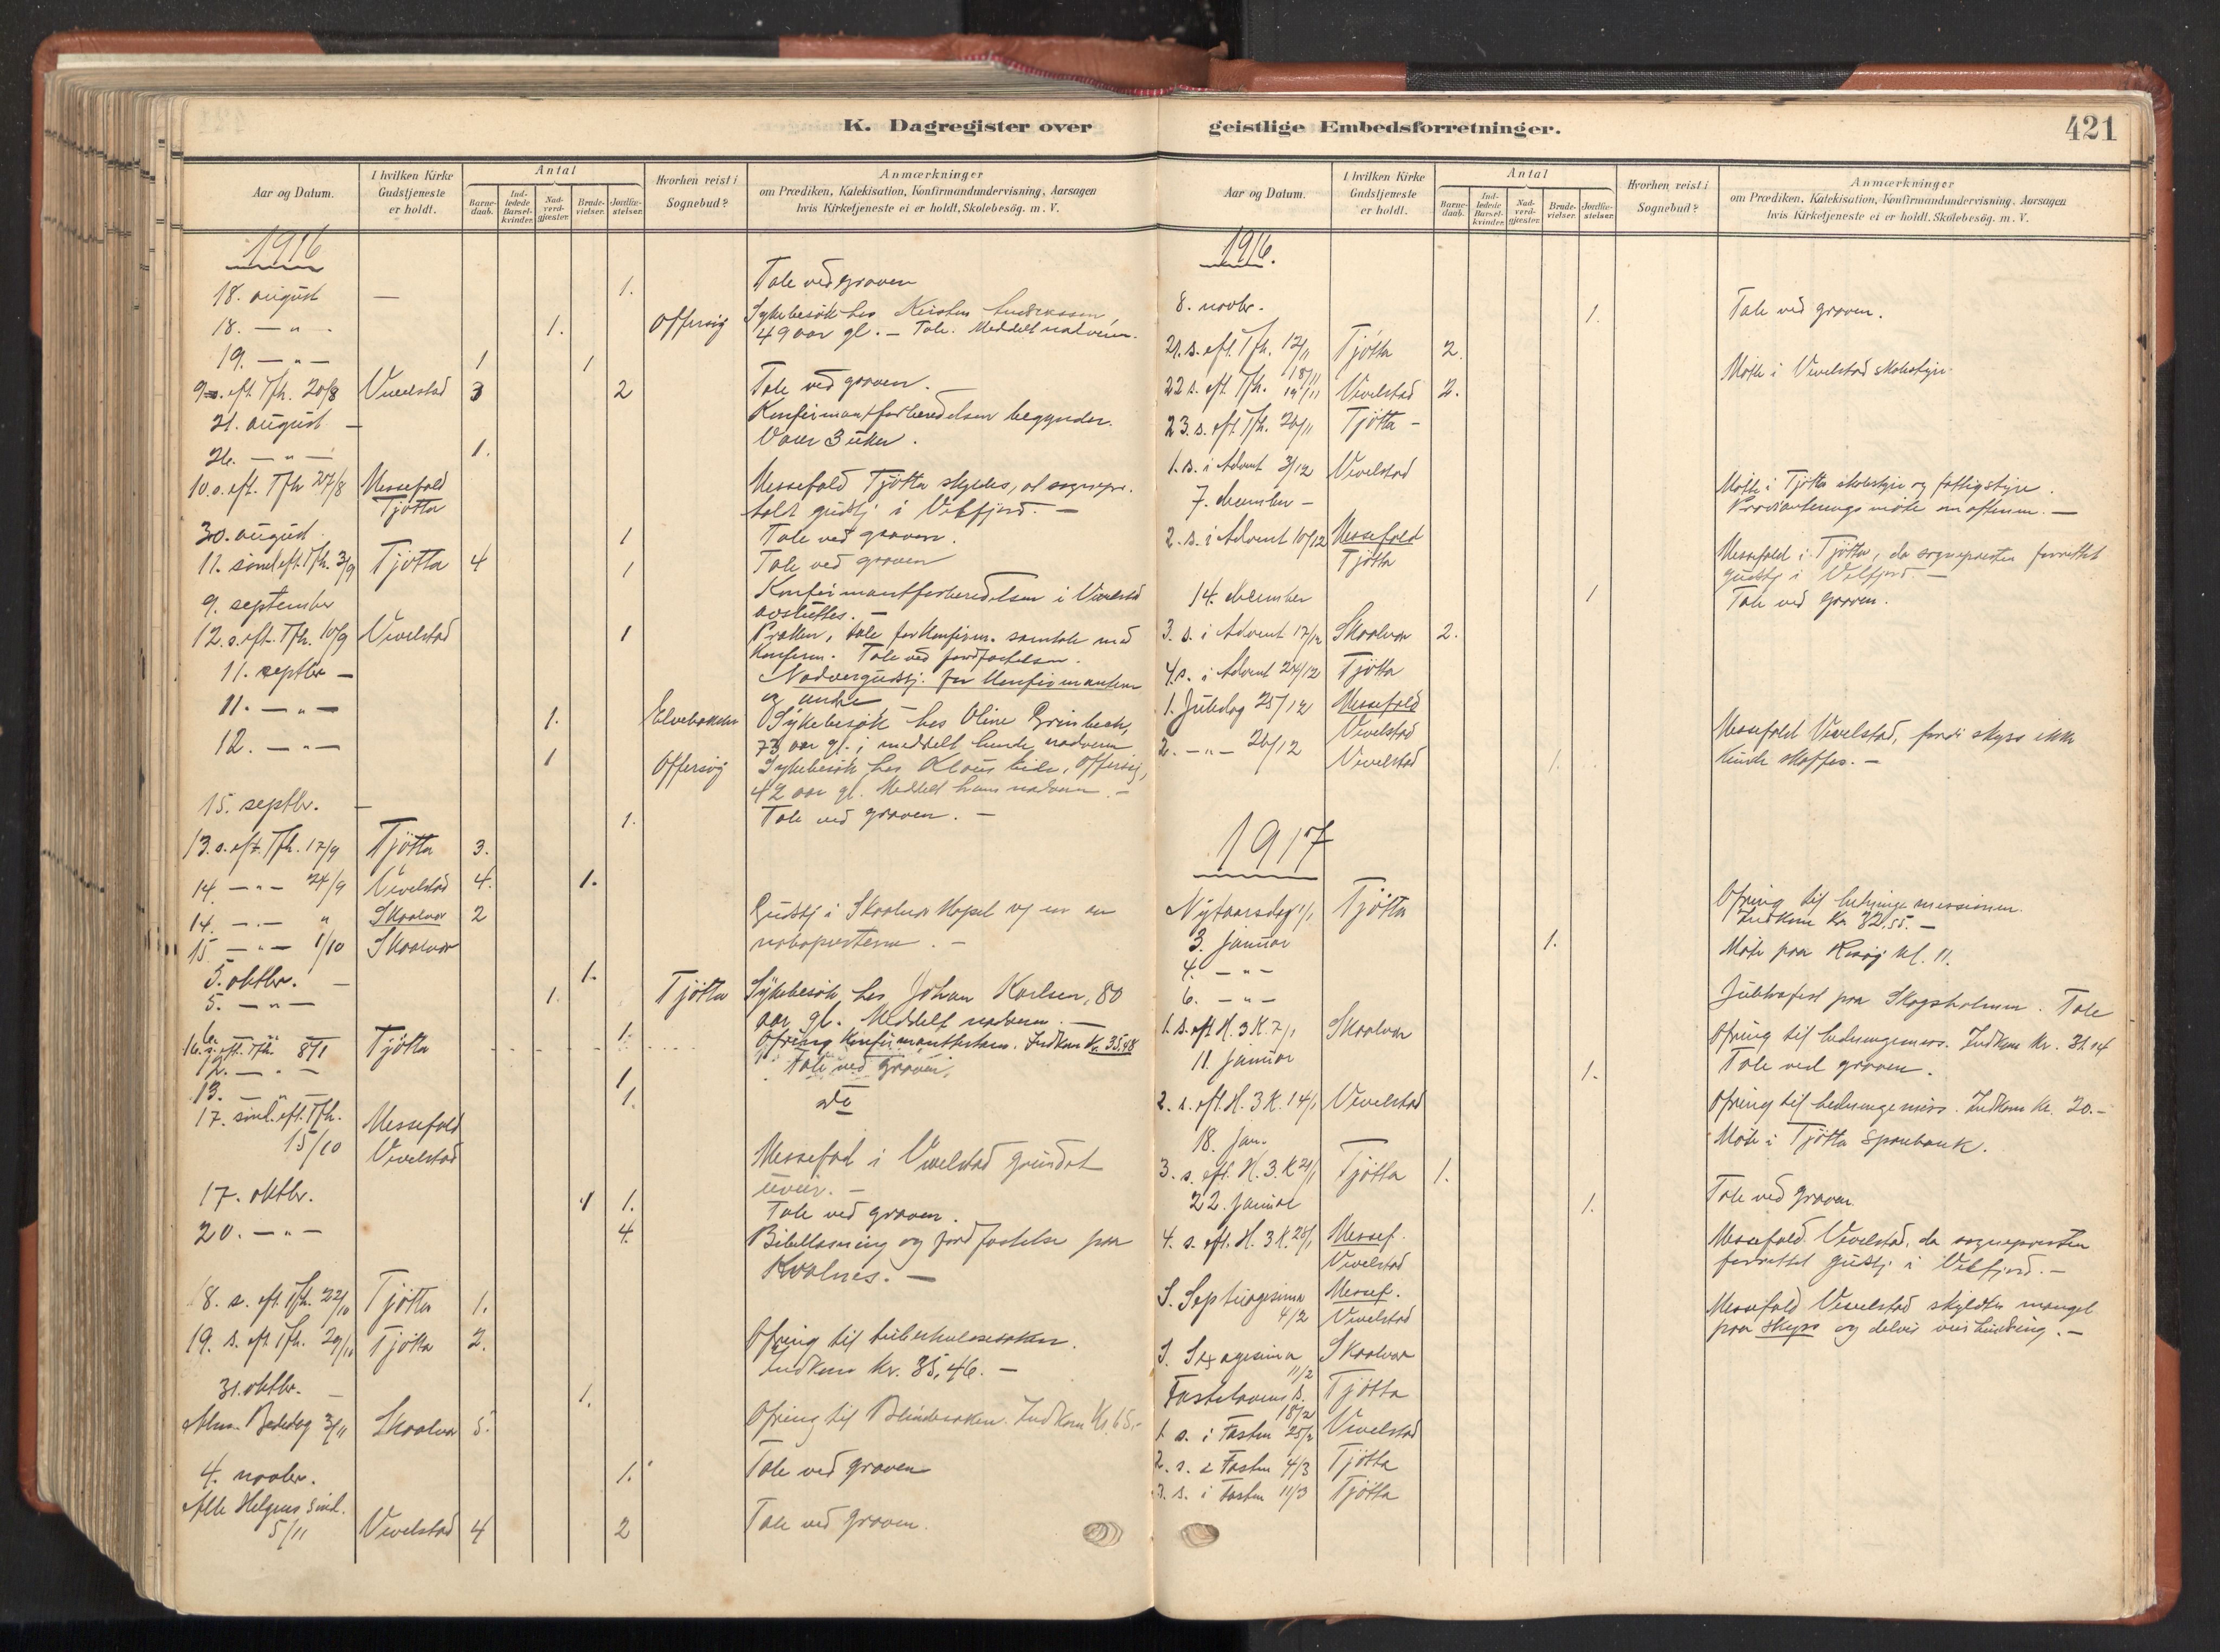 K. Dagregister over
Aar og Datum.
I hvilken Kirke Gudstjeneste er holdt.
Antal
Barne-daab.
Ind-ledede Barsel-kvinder.
Nad-verd-gjæster.
Brude-vielser.
Jordfæ-stelser.
Hvorhen reist i Sognebud?
Anmærkninger
om Prædiken, Katekisation, Konfirmandundervisning, Aarsagen
hvis Kirketjeneste ei er holdt, Skolebesög. m. V.
1916
18. august — 1. Tale ved graven
18. — " — 1. Offersøy Sykebesök hos Kirsten
49 aar gl. — Tale. Meddelt nadveren.
19. — " — 1 1
9. s. eft. Tfh. 20/8 Vevelstad 3 2 Tale ved graven.
21. august — Konfirmantforberedelsen begynder.
Varer 3 uker.
26. — " — 1.
10. s. eft. Tfh 27/8 Messefald Messefald Tjötta skyldes, at sognepr.
Tjötta holdt gudstj i Velfjord. —
30. august 1 Tale ved graven.
11. sönd. eft. Tfh. 3/9 Tjötta 4 1 Tale ved graven
9. september Konfirmantforberedelsen i Vevelstad
avsluttes. —
12. s. eft. Tfh. 10/9 Vevelstad 1 Præken, tale for konfirm. samtale med
konfirm. Tale ved jordfæstelsen.
11. septbr — Nadvergudstj. for konfirmantene
og andre
11. — " — 1. Sykebesök hos Oline
73 aar gl. meddelt hende nadveren
12. — " — 1 Offersøy Sykebesök hos Klaus Offersøy,
42 aar gl. Meddelt ham nadveren. —
15. septbr. — 1. Tale ved graven. —
13. s. eft. Tfh. 17/9 Tjötta 3.
14. — " — 24/9 Vevelstad 4. 1.
14. — " — " Skaalvar 2 Gudstj i Skaalvar kapel av en av
nabopresterne. —
15 — " — 1/10 Skaalvar
5. oktbr. — 1.
5. — " — 1. Tjötta Sykebesök hos Johan Karlsen, 80
aar gl. Meddelt nadveren. —
6. 1.
16. s. eft. Tfh. 8/1 Tjötta Ofring Indkom Kr. 35,48
12. — " — 1 Tale ved graven.
13. — " — 1. do
17. sönd. eft. Tfh. Messefald
15/10 Vevelstad Messefald i Vevelstad grundet
uveir. —
17. oktbr. 1 1. Tale ved graven.
20. — " — 4. Bibellæsning og jordfæstelse paa
Kvalnes. —
18. s. eft. Tfh. 22/10 Tjötta 1.
19. s. eft Tfh. 29/10 Tjötta 2. Ofring til tuberkulosesaken.
Indkom Kr. 35,46. —
31. oktbr. — 1.
Alm. Bededag 3/11 Skaalvar 5. Ofring til Blindesaken. Indkom Kr. 65.-
4. novbr. 1. Tale ved graven
Alle Helgens sönd.
5/11 Vevelstad 4 2 Tale ved graven.
geistlige Embedsforretninger.
421
Aar og Datum.
I hvilken Kirke Gudstjeneste er holdt.
Antal
Barne-daab.
Ind-ledede Barsel-kvinder.
Nad-verd-gjæster.
Brude-vielser.
Jordfæ-stelser.
Hvorhen reist i Sognebud?
Anmærkninger
om Prædiken, Katekisation, Konfirmandundervisning, Aarsagen
hvis Kirketjeneste ei er holdt. Skolebesög. m. V.
1916.
8. novbr. 1. Tale ved graven.
21. s. eft. Tfh. 12/11 Tjötta 2.
18/11 Möte i Vevelstad skolestyre.
22 s. eft. Tfh. 19/11 Vevelstad 2.
23. s. eft. Tfh. 26/11 Tjötta —
1. s. i Advent 3/12 Vevelstad
7. december — Möte i Tjötta skolestyre og fattigstyre.
Provianteringsmöte om aftenen. —
2. s. i Advent 10/12 Messefald Messefald i Tjötta, da sognepresten forrettet
Tjötta gudstj i Velfjord —
14. december 1 Tale ved graven.
3. s. i Advent 17/12 Skaalvar 2.
4. s. i Advent 24/12 Tjötta
1. Juledag 25/12 Messefald Messefald Vevelstad, fordi skyss ikke
Vevelstad kunde skaffes. —
2. — " — 26/12 Vevelstad 1.
1917
Nytaarsdag 1/1 Tjötta Ofring til hedningemissionen.
Indkom Kr. 32.55. —
3. januar 1.
4. — " — Möte paa kl. 11.
6. — " — Juletræfest paa Skogsholmen. Tale
1. s. eft H. 3 K. 7/1 Skaalvar Ofring til hedningemiss. Indkom Kr. 31.14
11. januar 1. Tale ved graven.
2. s. eft. H. 3 K. 14/1 Vevelstad Ofring til hedningemiss. Indkom Kr. 20.-
18. jan. Möte i Tjötta Sparebank.
3. s. eft. H. 3. K 21/1 Tjötta 1.
22. januar 1. Tale ved graven
4. s. eft. H. 3 K. 28/1 Messef. Messefald Vevelstad, da sognepresten
Vevelstad forrettet gudstj i Velfjord. —
S. Septuagesima Messef. Messefald Vevelstad skyldtes mangel
4/2 Vevelstad paa skyss og delvis veirhindring. —
S. Sexagesima 11/2 Skaalvar
Fastelavns s. 18/2 Tjötta
1. s. i Fasten 25/2 Vevelstad
2. s. i Fasten 4/3 Tjötta
3. s. i Fasten 11/3 Tjötta